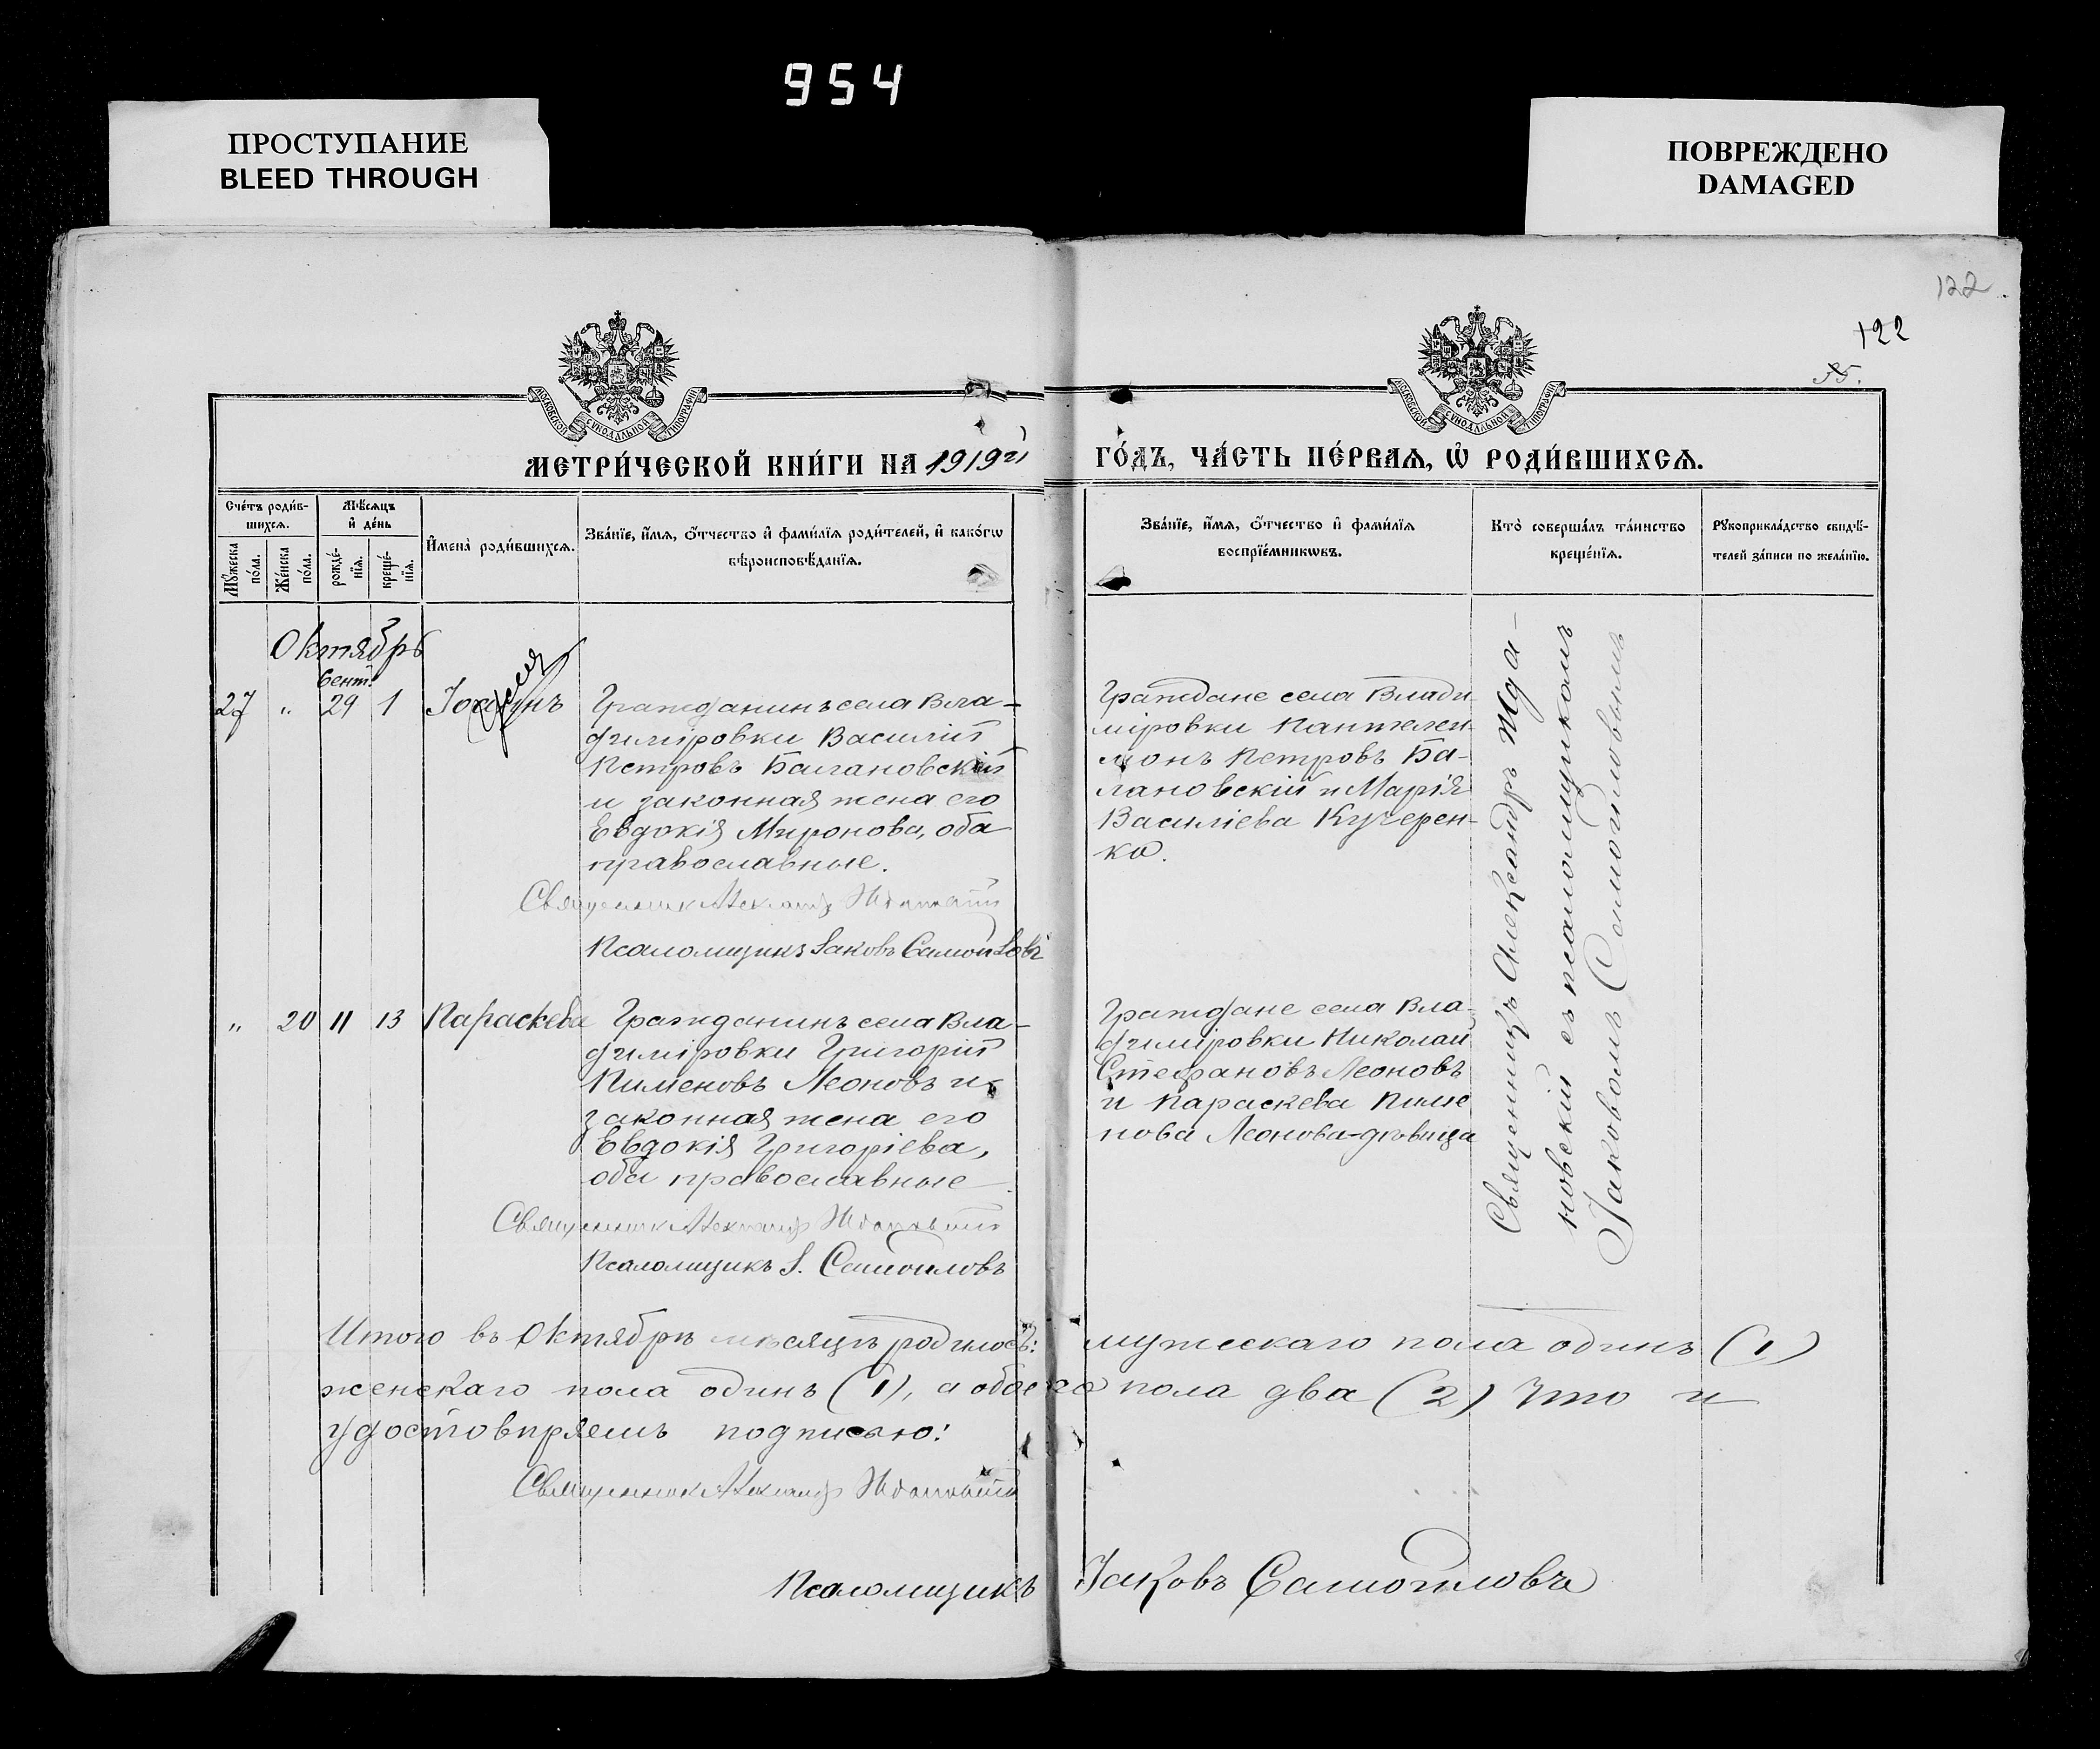 954
ПРОСТУПАНИЕ
BLEED THROUGH
ПОВРЕЖДЕНО
DAMAGED
122
122
55.
МОСКОВСКОЙ СѴНОДАЛЬНОЙ ТИПОГРАФІИ
МОСКОВСКОЙ СѴНОДАЛЬНОЙ ТИПОГРАФІИ
МЕТРИ́ЧЕСКОЙ КНИ́ГИ НА 1919й ГО́ДЪ, ЧА́СТЬ ПЕ́РВАѦ, Ѡ҆ РОДИ́ВШИХСѦ.
Сче́тъ роди́в-
шихсѧ.
Мꙋ́жеска
по́ла.
Же́нска
по́ла.
Мѣ́сѧцъ
и҆ де́нь
рожде́-
нїѧ.
креще́-
нїѧ.
И҆мена̀ роди́вшихсѧ.
Зва́нїе, и҆́мѧ, ѻ҆́тчество и҆ фами́лїѧ роди́телей, и҆ како́гѡ
вѣроисповѣ́данїѧ.
Зва́нїе, и҆́мѧ, ѻ҆́тчество и҆ фами́лїѧ
воспрїе́мникѡвъ.
Кто̀ соверша́лъ та́инство
креще́нїѧ.
Рꙋкоприкла́дство свидѣ́-
телей за́писи по жела́нїю.
Октябрь
Сент.
27 " 29 1
Гражданинъ села Вла-
диміровки Василій
Петровъ Балановскій
и законная жена его
Евдокія Миронова, оба
православные.
Священник Александр Ждановскій
Псаломщикъ Іаковъ Самойловъ
Граждане села Влади
міровки Пантелеи-
монъ Петровъ Ба-
лановскій и Марія
Василіева Кучерен-
ко.
Священникъ Александръ Жда-
новскій съ псаломщикомъ
Іаковомъ Самойловымъ
" 20 11 13 Параскева
Гражданинъ села Вла-
диміровки Григорій
Пименовъ Леоновъ и
законная жена его
Евдокія Григоріева,
оба православные
Священник Александр Ждановскій
Псаломщикъ І. Самойловъ
Граждане села Вла-
диміровки Николай
Стефановъ Леоновъ
и Параскева Пиме
нова Леонова-дѣвица
Итого въ Октябрѣ мѣсяцѣ родилось: мужескаго пола одинъ (1)
женскаго пола одинъ (1), а обоего пола два (2) Что и
удостовѣряемъ подписью:
Священник Александр Ждановскій
Псаломщикъ Іаковъ Самойловъ